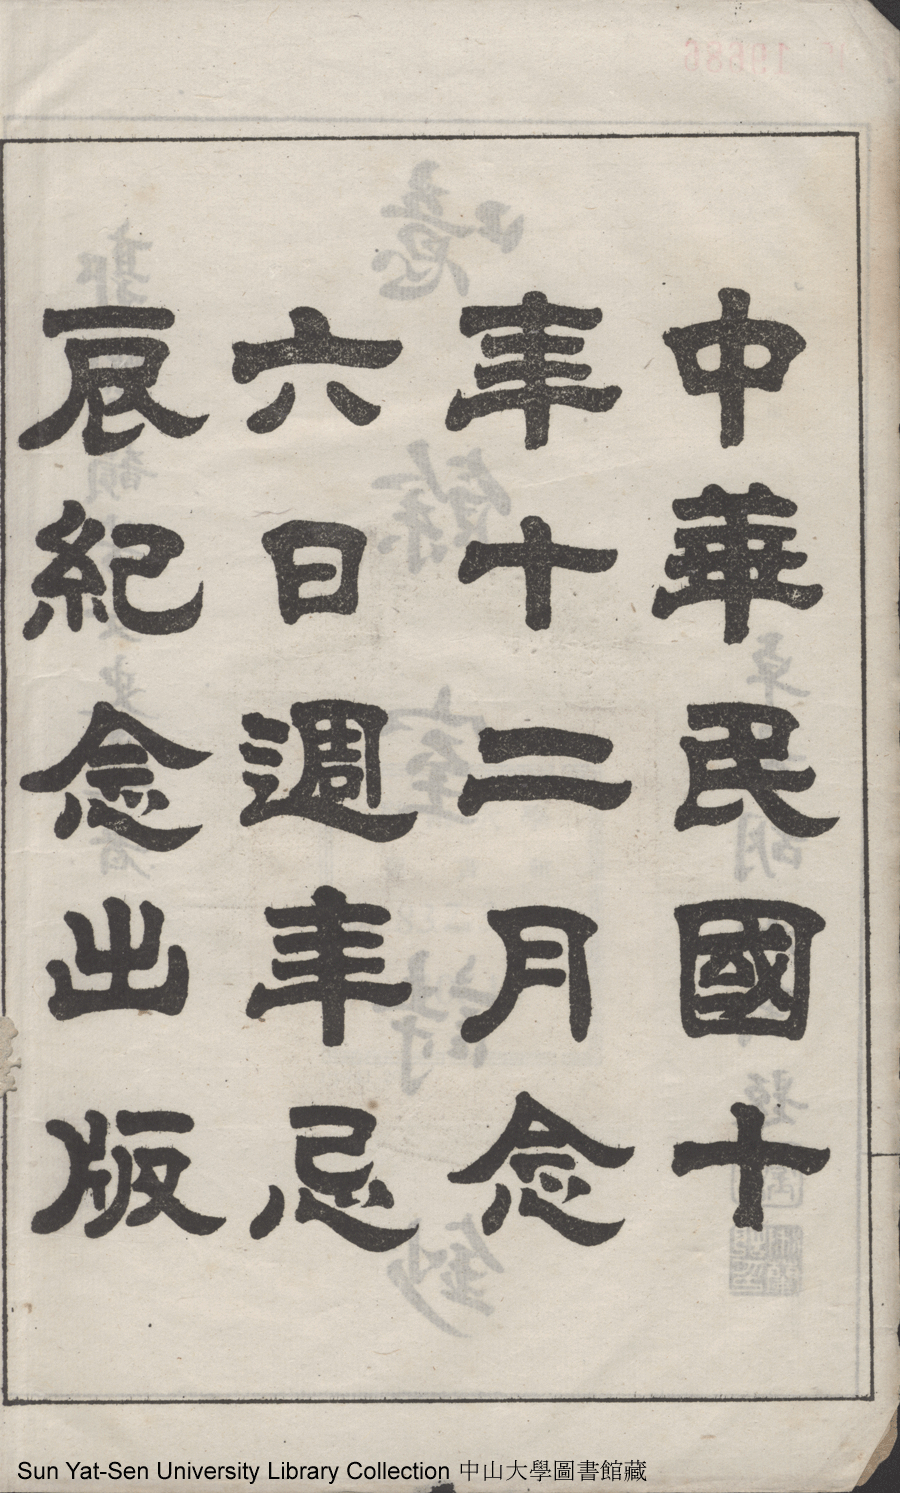 中華民國十
年十二月念
六日週年忌
辰紀念出版
Sun Yat-Sen University Library Collection 中山大學圖書館藏